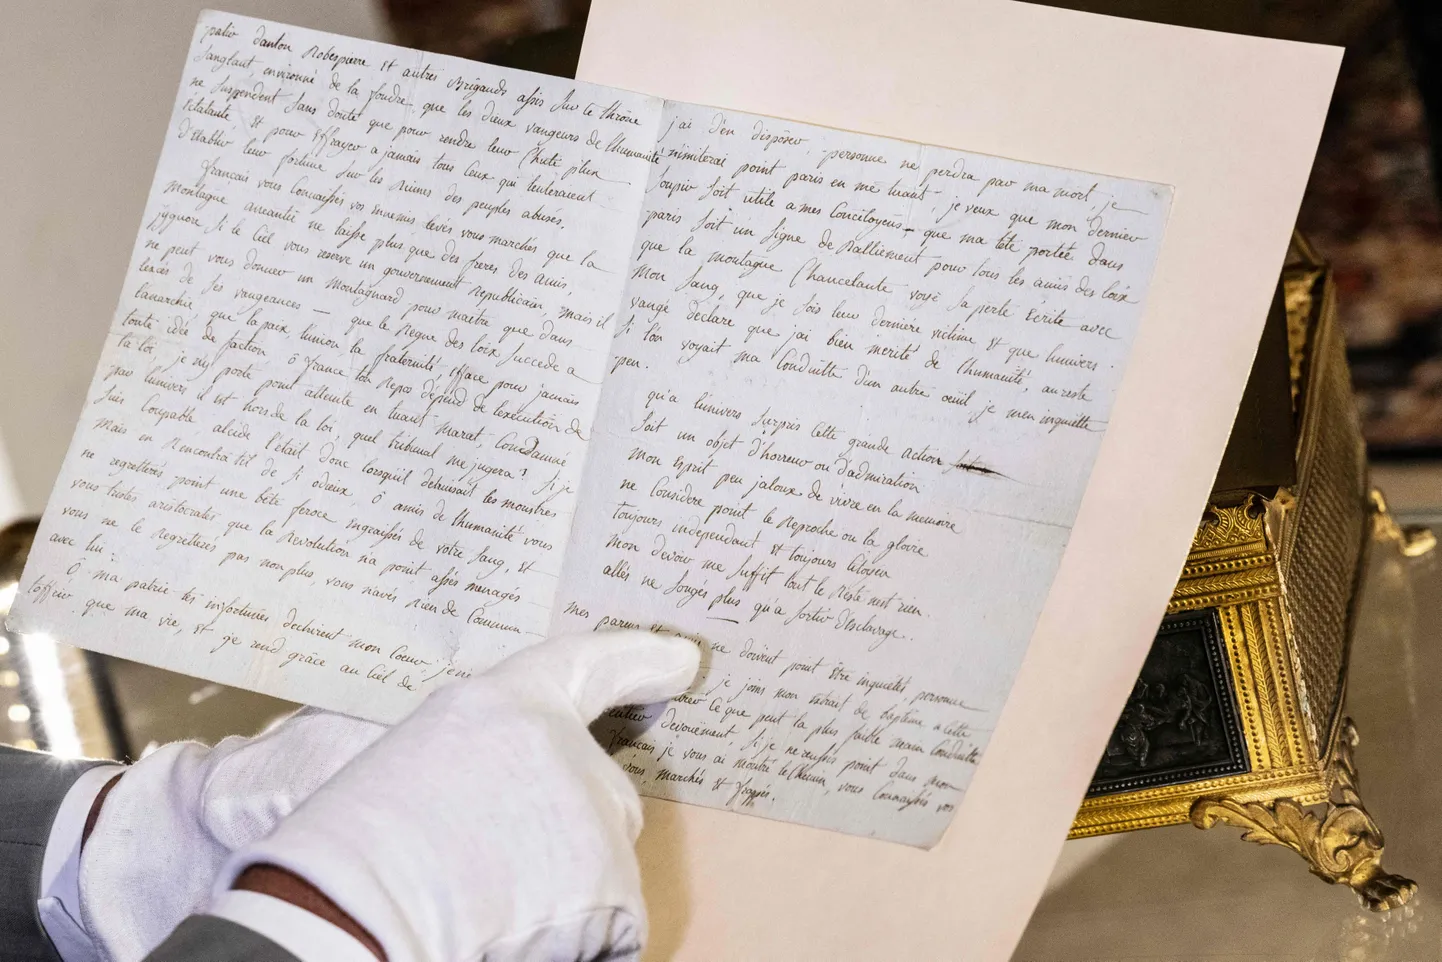 patrie danton Robespierre et autres Brigands assis sur le thrône
sanglant environné de la foudre, que les dieux vangeurs de l'humanité
ne suspendent sans doute que pour rendre leur chute plus
éclatante et pour effrayer a jamais tous ceux qui tenteraient
d'établir leur fortune sur les ruines des peuples abusés.
français vous connaissés vos ennemis, levés vous marchés que la
montagne aneantie ne laisse plus que des freres des amis,
j'ygnore si le ciel vous reserve un gouvernement republicain, mais il
ne peut vous donner un Montagnard pour maître que dans
l'excès de ses vangeances — que le Regne des loix succede a
l'anarchie, que la paix, l'union, la fraternité, efface pour jamais
toute idée de faction. ô france ton Repos dépend de l'exécution de
la loi, je n'y porte point atteinte en tuant marat, condamné
par l'univers il est hors de la loi. quel tribunal me jugera? si je
suis coupable alcide l'était donc lorsqu'il detruisait les monstres
mais en Rencontra t'il de si odieux, ô amis de l'humanité vous
ne regretterés point une bête feroce ingraissés de votre sang, et
vous tristes aristocrates que la Revolution n'a point assés menagés
vous ne le Regretterés pas non plus, vous n'avés rien de commun
avec lui:
Ô ma patrie tes infortunes dechirent mon coeur, je ne
t'offrir que ma vie, et je rend grâce au Ciel de
j'ai d'en disposer, personne ne perdra par ma mort, je
n'imiterai point paris en me tuant, je veux que mon dernier
soupir soit utile a mes concitoyens, que ma tête portée dans
paris soit un signe de Ralliement pour tous les amis des loix
que la montagne Chancelante voye sa perte écrite avec
mon sang, que je sois leur derniere victime et que l'univers
vangé declare que j'ai bien merité de l'humanité, au reste
si l'on voyait ma conduitte d'un autre oeuil je m'en inquiette
peu.
qu'a l'univers surpris cette grande action
soit un objet d'horreur ou d'admiration
mon esprit peu jaloux de vivre en la memoire
ne considere point le reproche ou la gloire
toujours independant et toujours citoyen
mon devoir me suffit tout le reste n'est rien.
allés ne songés plus qu'a sortir d'esclavage..
mes parens et amis ne doivent point être inquietés, personne
je joins mon extrait de baptême a cette
ce que peut la plus faible main conduitte
entier devouëment. si je ne reussis point dans mon
français je vous ai montré le chemin, vous connaissés vos
vous, marchés et frappés.